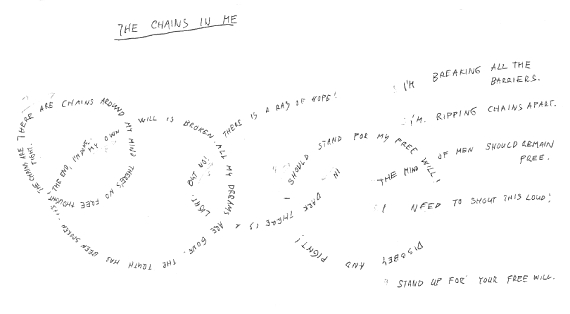 THE CHAINS IN ME
THE CHAINS ARE TIGHT.
THERE ARE CHAINS AROUND MY MIND THERE'S NO FREE THOUGHT,
MY OWN WILL IS BROKEN ALL MY DREAMS ARE GONE.
THE TRUTH HAS BEEN SPOKEN. IT'S THE END, I'M DONE.
BUT NO!
THERE IS A RAY OF HOPE!
IN DARK THERE IS A LIGHT.
I SHOULD STAND FOR MY FREE WILL,
DISOBEY AND FIGHT!
I'M BREAKING ALL THE
BARRIERS.
I'M RIPPING CHAINS APART.
THE MIND OF MEN SHOULD REMAIN
FREE.
I NEED TO SHOUT THIS LOUD!
STAND UP FOR YOUR FREE WILL.